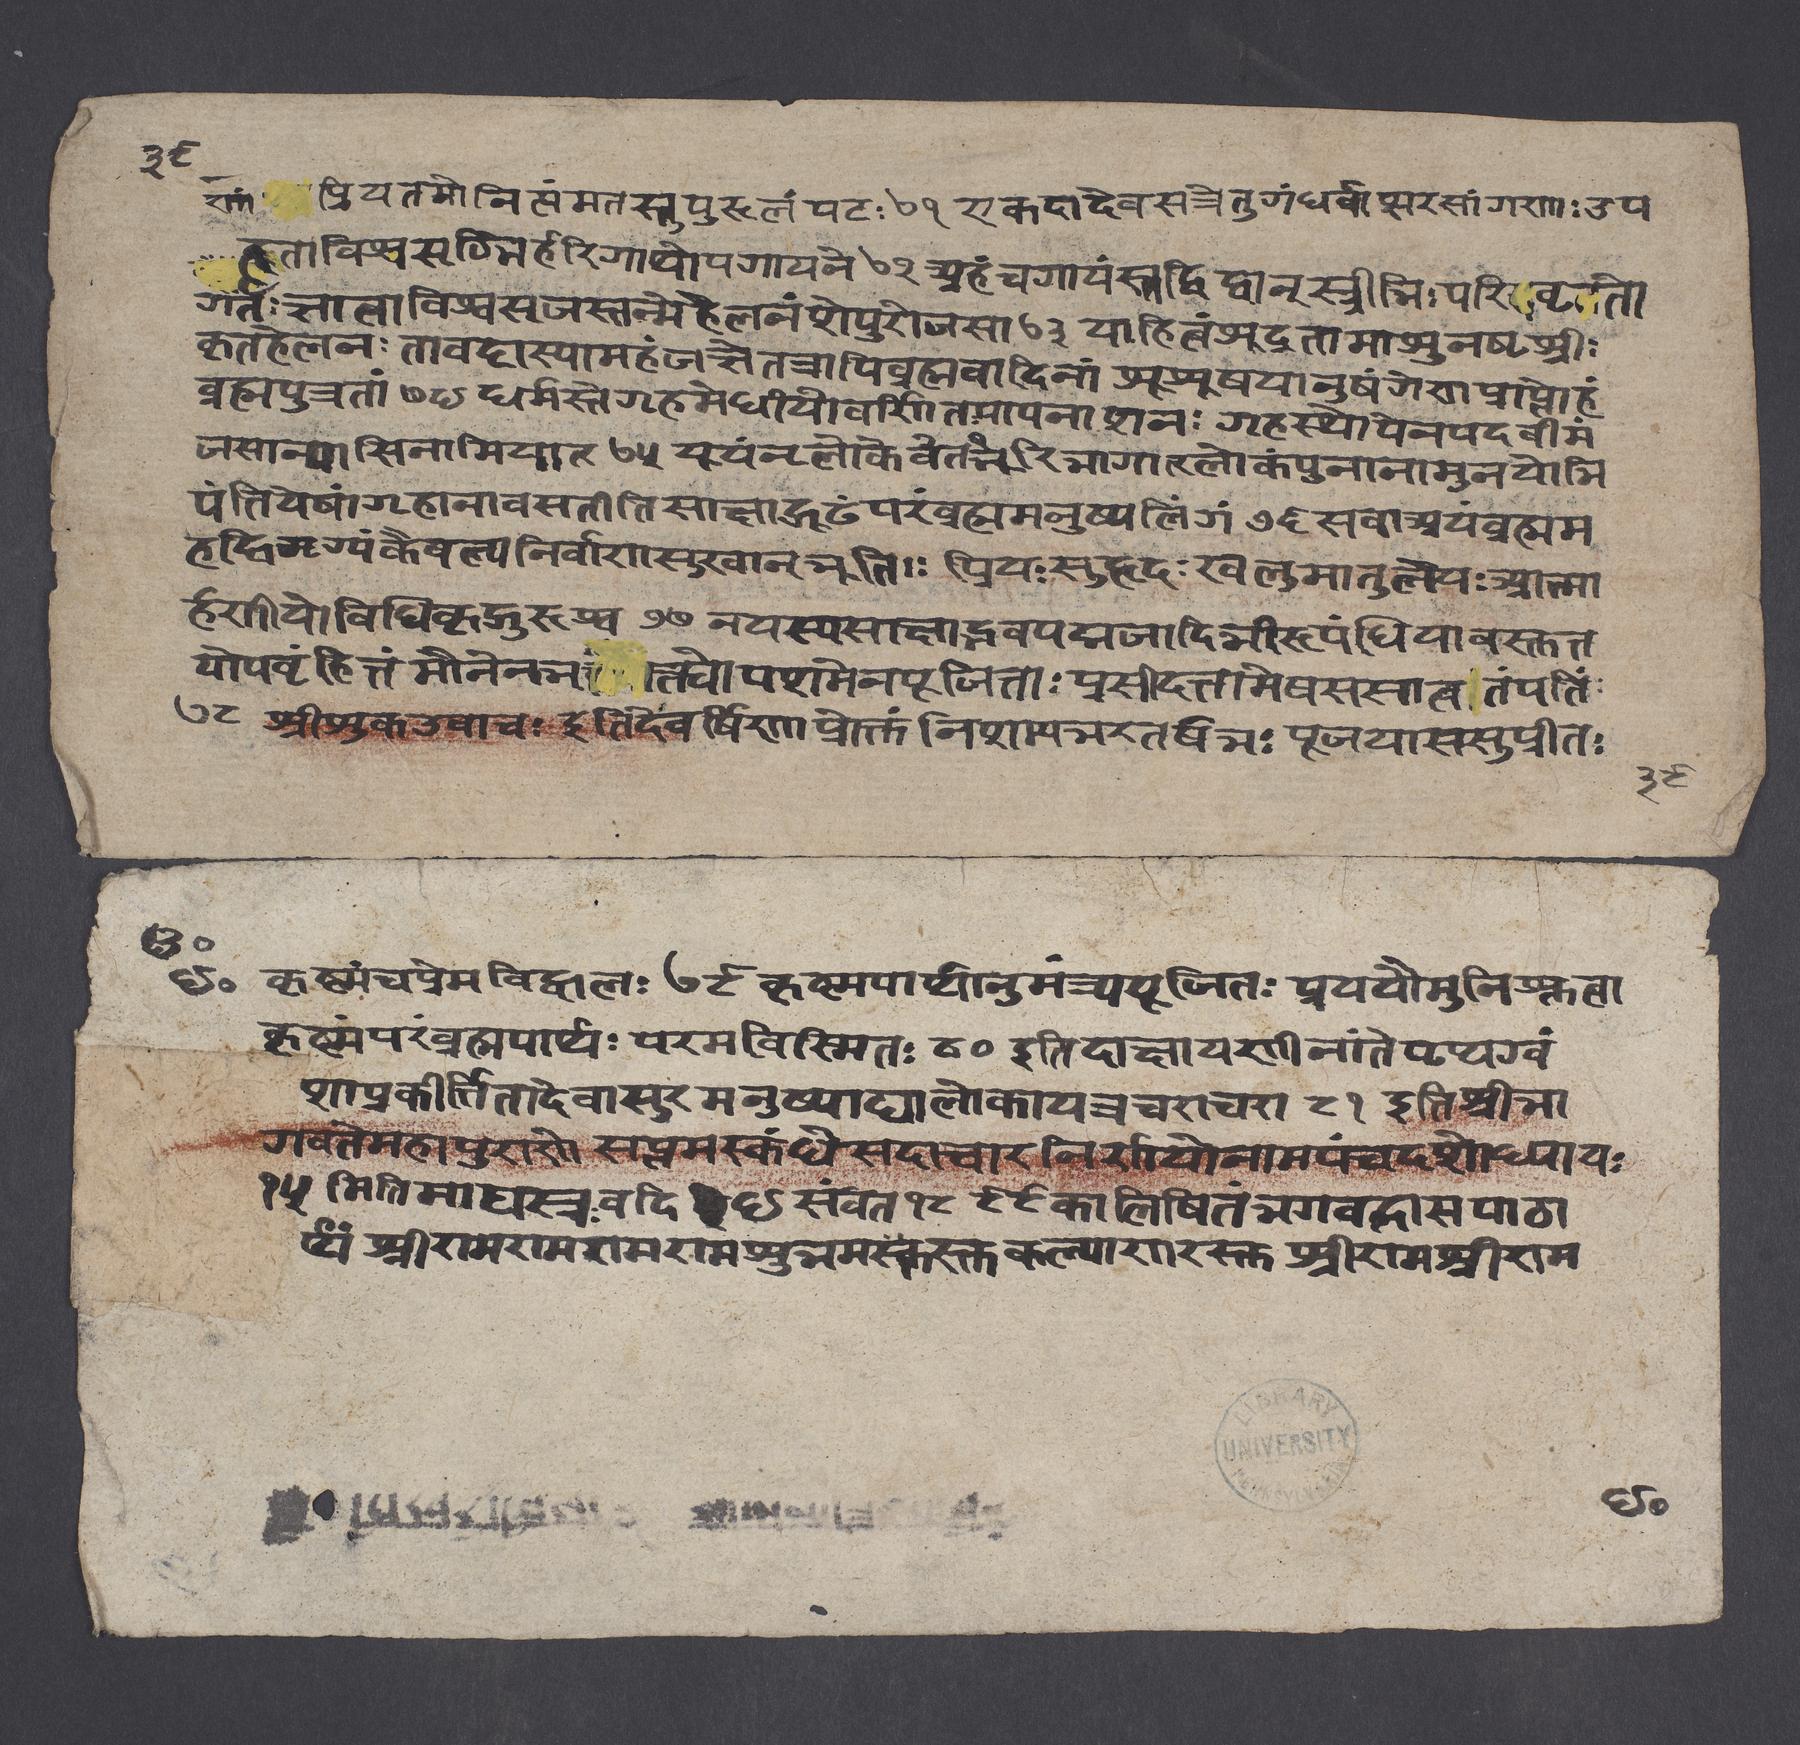 ३९
स्त्रीणां प्रियतमो नित्यंमतस्तुपुरूलंपटः ७१ एकदादेवसत्रेतुगंधर्वाप्सरसांगणाः उप
हूताविश्वसृग्भिर्हरिगाथोपगायने ७२ अहंचगायंस्तद्विद्वान्स्त्रीभिः परिवृतो
गतः ज्ञात्वाविश्वसृजस्तन्मेहेलनंशेपुरोजसा ७३ याहित्वंशूद्रतामाशुनष्टश्रीः
कृतहेलनः तावद्दास्यामहंजज्ञेतत्रापिब्रह्मवादिनां शुश्रूषयानुषंगेणप्राप्तोहं
ब्रह्मपुत्रतां ७४ धर्मस्तेगृहमेधीयोवर्णितःपापनाशनः गृहस्थोयेनपदवीमं
जसान्यासिनामियात् ७५ यूयंनृलोकेबतभूरिभागात्लोकंपुनानामुनयोभि
यंतियेषांगृहानावसतीतिसाक्षाद्गूढंपरंब्रह्ममनुष्यलिंगं ७६ सवाअयंब्रह्मम
हद्विमृग्यंकैवल्यनिर्वाणसुखानुभूतिः प्रियःसुहृदः खलुमातुलेयः आत्मा
र्हणीयोविधिकृद्गुरूश्च ७७ नयस्यसाक्षाद्भवपद्मजादिभीरूपंधियावस्तुत
योपवृंहितं मौनेनभक्त्योपशमेनपूजिताः प्रसीदतामेषससात्वतंपतिः
७८ श्रीशुकउवाचः इतिदेवर्षिणाप्रोक्तंनिशम्यभरतर्षभः पूजयाससुप्रीतः
३९
३०
४० कृष्णंचप्रेमविह्वलः ७९ कृष्णपार्थानुमंत्र्यपूजितः प्रययौमुनिश्रुत्वा
कृष्णंपरंब्रह्मपार्थः परमविस्मितः ८० इतिदाक्षायणीनांतेपृथग्वं
शाप्रकीर्त्तितादेवासुरमनुष्याद्यालोकायत्रचराचरा ८१ इतिश्रीभा
गवतेमहापुराणे सप्तमस्कंधेसदाचारनिर्णयोनामपंचदशोध्यायः
१५ मितिमाघस्त्रःवदि ४ संवत १८ ९९ कालिषितंभगवद्दासपाठा
र्थं श्रीरामरामरामरामशुभमस्कस्तकल्याणरस्त श्रीरामश्रीराम
LIBRARY
UNIVERSITY
PENNSYLVANIA
४०